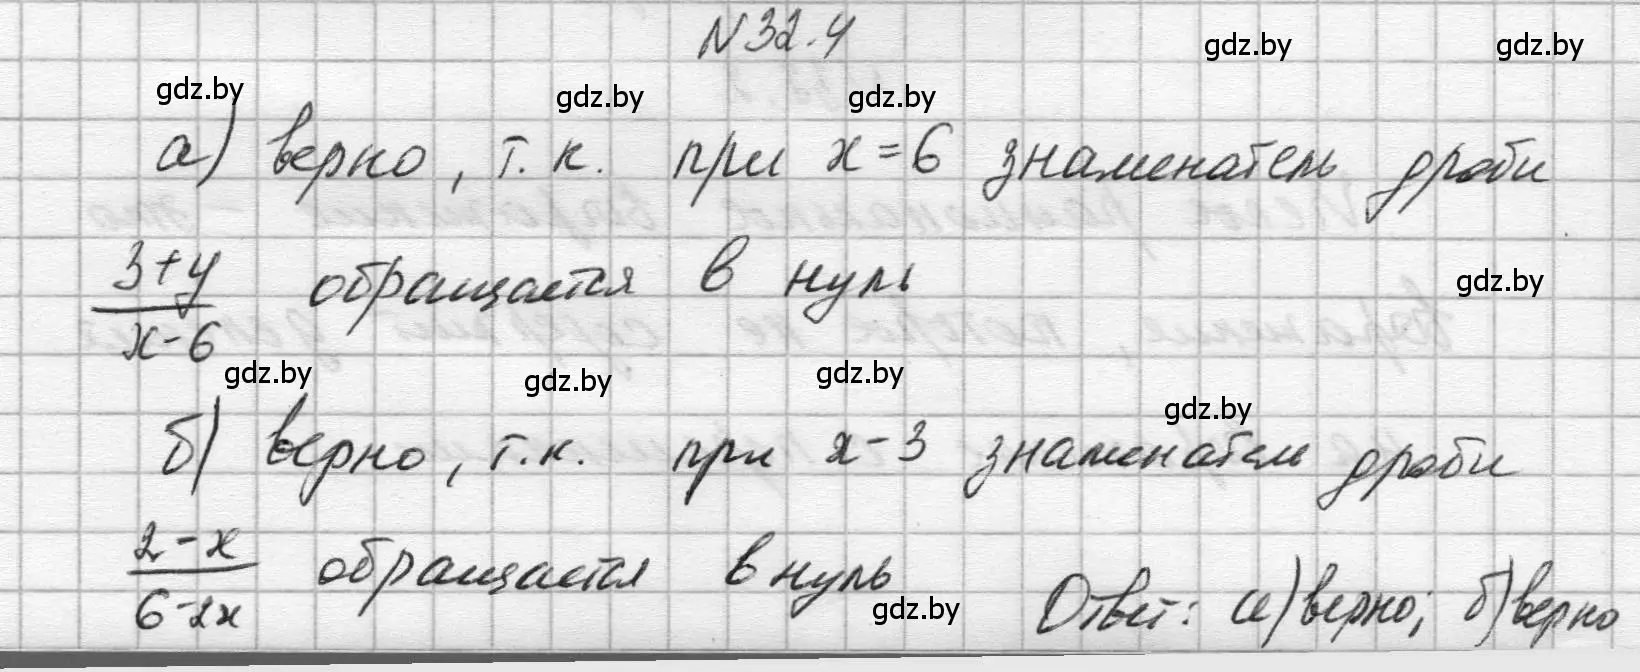 N 32.4
gdz.by gdz.by
gdz.by gdz.by gdz.by
а) верно, т.к. при x = 6 знаменатель дроби
3+y / x-6 обращается в нуль
gdz.by
gdz.by gdz.by gdz.by
gdz.by
б) верно, т.к. при x - 3 знаменатель дроби
2-x / 6-2x обращается в нуль
gdz.by
Ответ: а) верно; б) верно